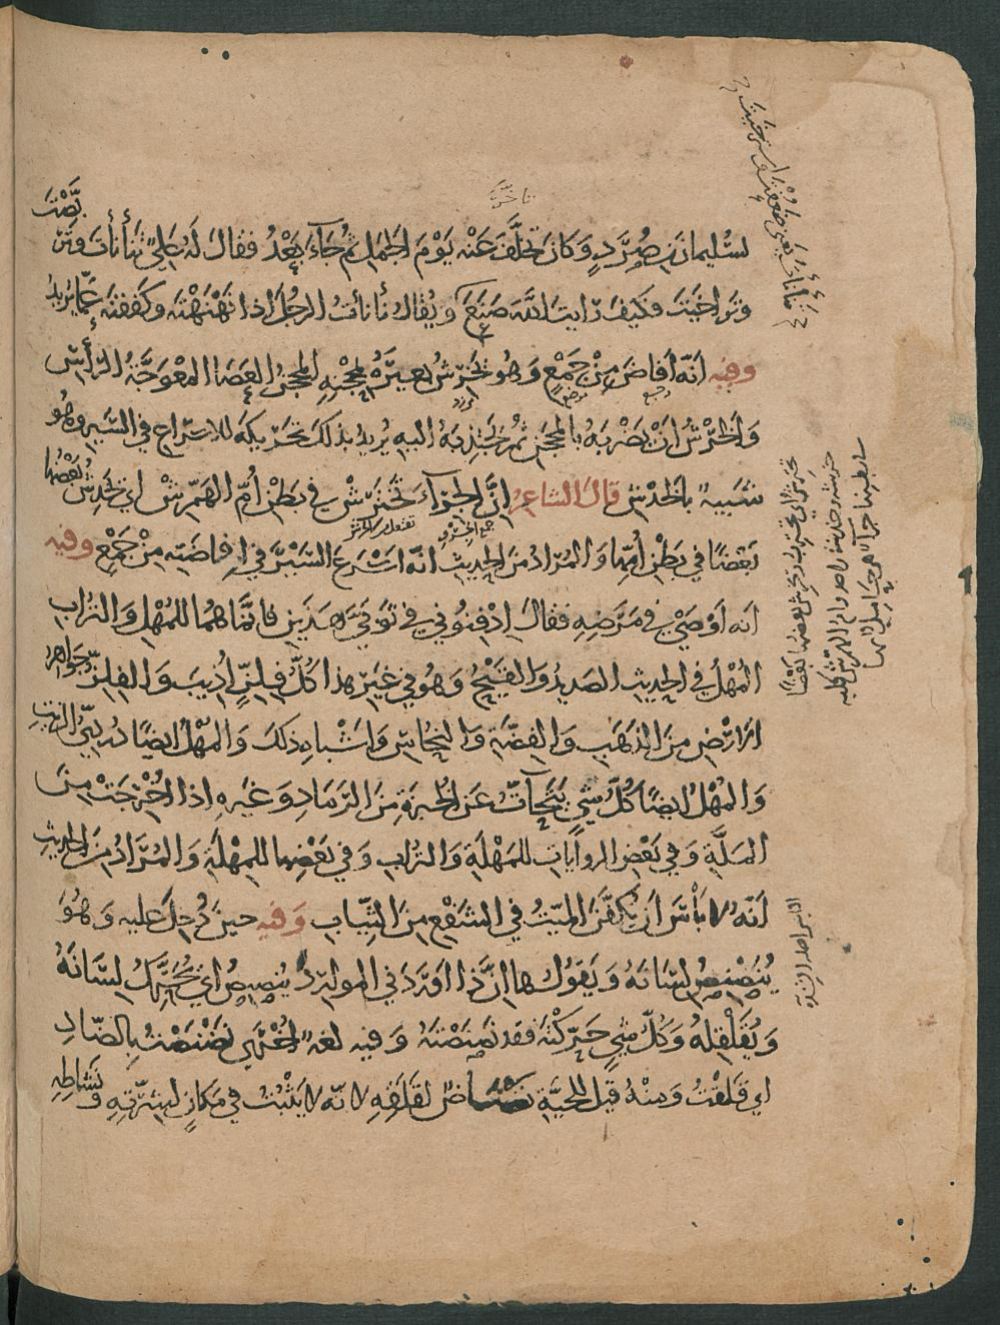 لسليمان بن صرد وكان تخلف عنه يوم الجمل ثم جاء بعد فقال له علي تنأنأت وتربصت
وتراخيت فكيف رأيت الله صنع ويقال نأنأت الرجل اذا نهنهته وكففته عما يريد
وفيه انه افاض من جمع وهو يخرش بعيره بمحجنه المحجن العصا المعوجة الرأس
والخرش ان يضربه بالمحجن ثم يجتذبه اليه يريد بذلك تحريكه للاسراع في السير وهو
شبيه بالخدش قال الشاعر ان الجراء تخترش في بطن ام الهمرش اي يخدش بعضها
بعضا في بطن امها والمراد من الحديث انه اسرع السير في افاضته من جمع وفيه
انه اوصى في مرضه فقال ادفنوني في ثوبي هذين فانما هما للمهل والتراب
المهل في الحديث الصديد والقيح وهو في غير هذا كل فلز اذيب والفلز جواهر
الارض من الذهب والفضة والنحاس واشباه ذلك والمهل ايضا دردي الزيت
والمهل ايضا كل شيء يتحات عن الخبزة من الرماد وغيره اذا اخرجت من
الملة وفي بعض الروايات للمهلة والتراب وفي بعضها للمهلة والمراد من الحديث
انه لا بأس ان يكفن الميت في الشفع من الثياب وفيه حين دخل عليه وهو
ينصنص لسانه ويقول ها ان ذا اوردني الموارد ينصنص اي يحرك لسانه
ويقلقله وكل شيء حركته فقد نصنصته وفيه لغة اخرى نضنضت بالضاد
اي قلقلت ومنه قيل للحية نضناض لقلقه لانه لا يثبت في مكان لشرته ونشاطه